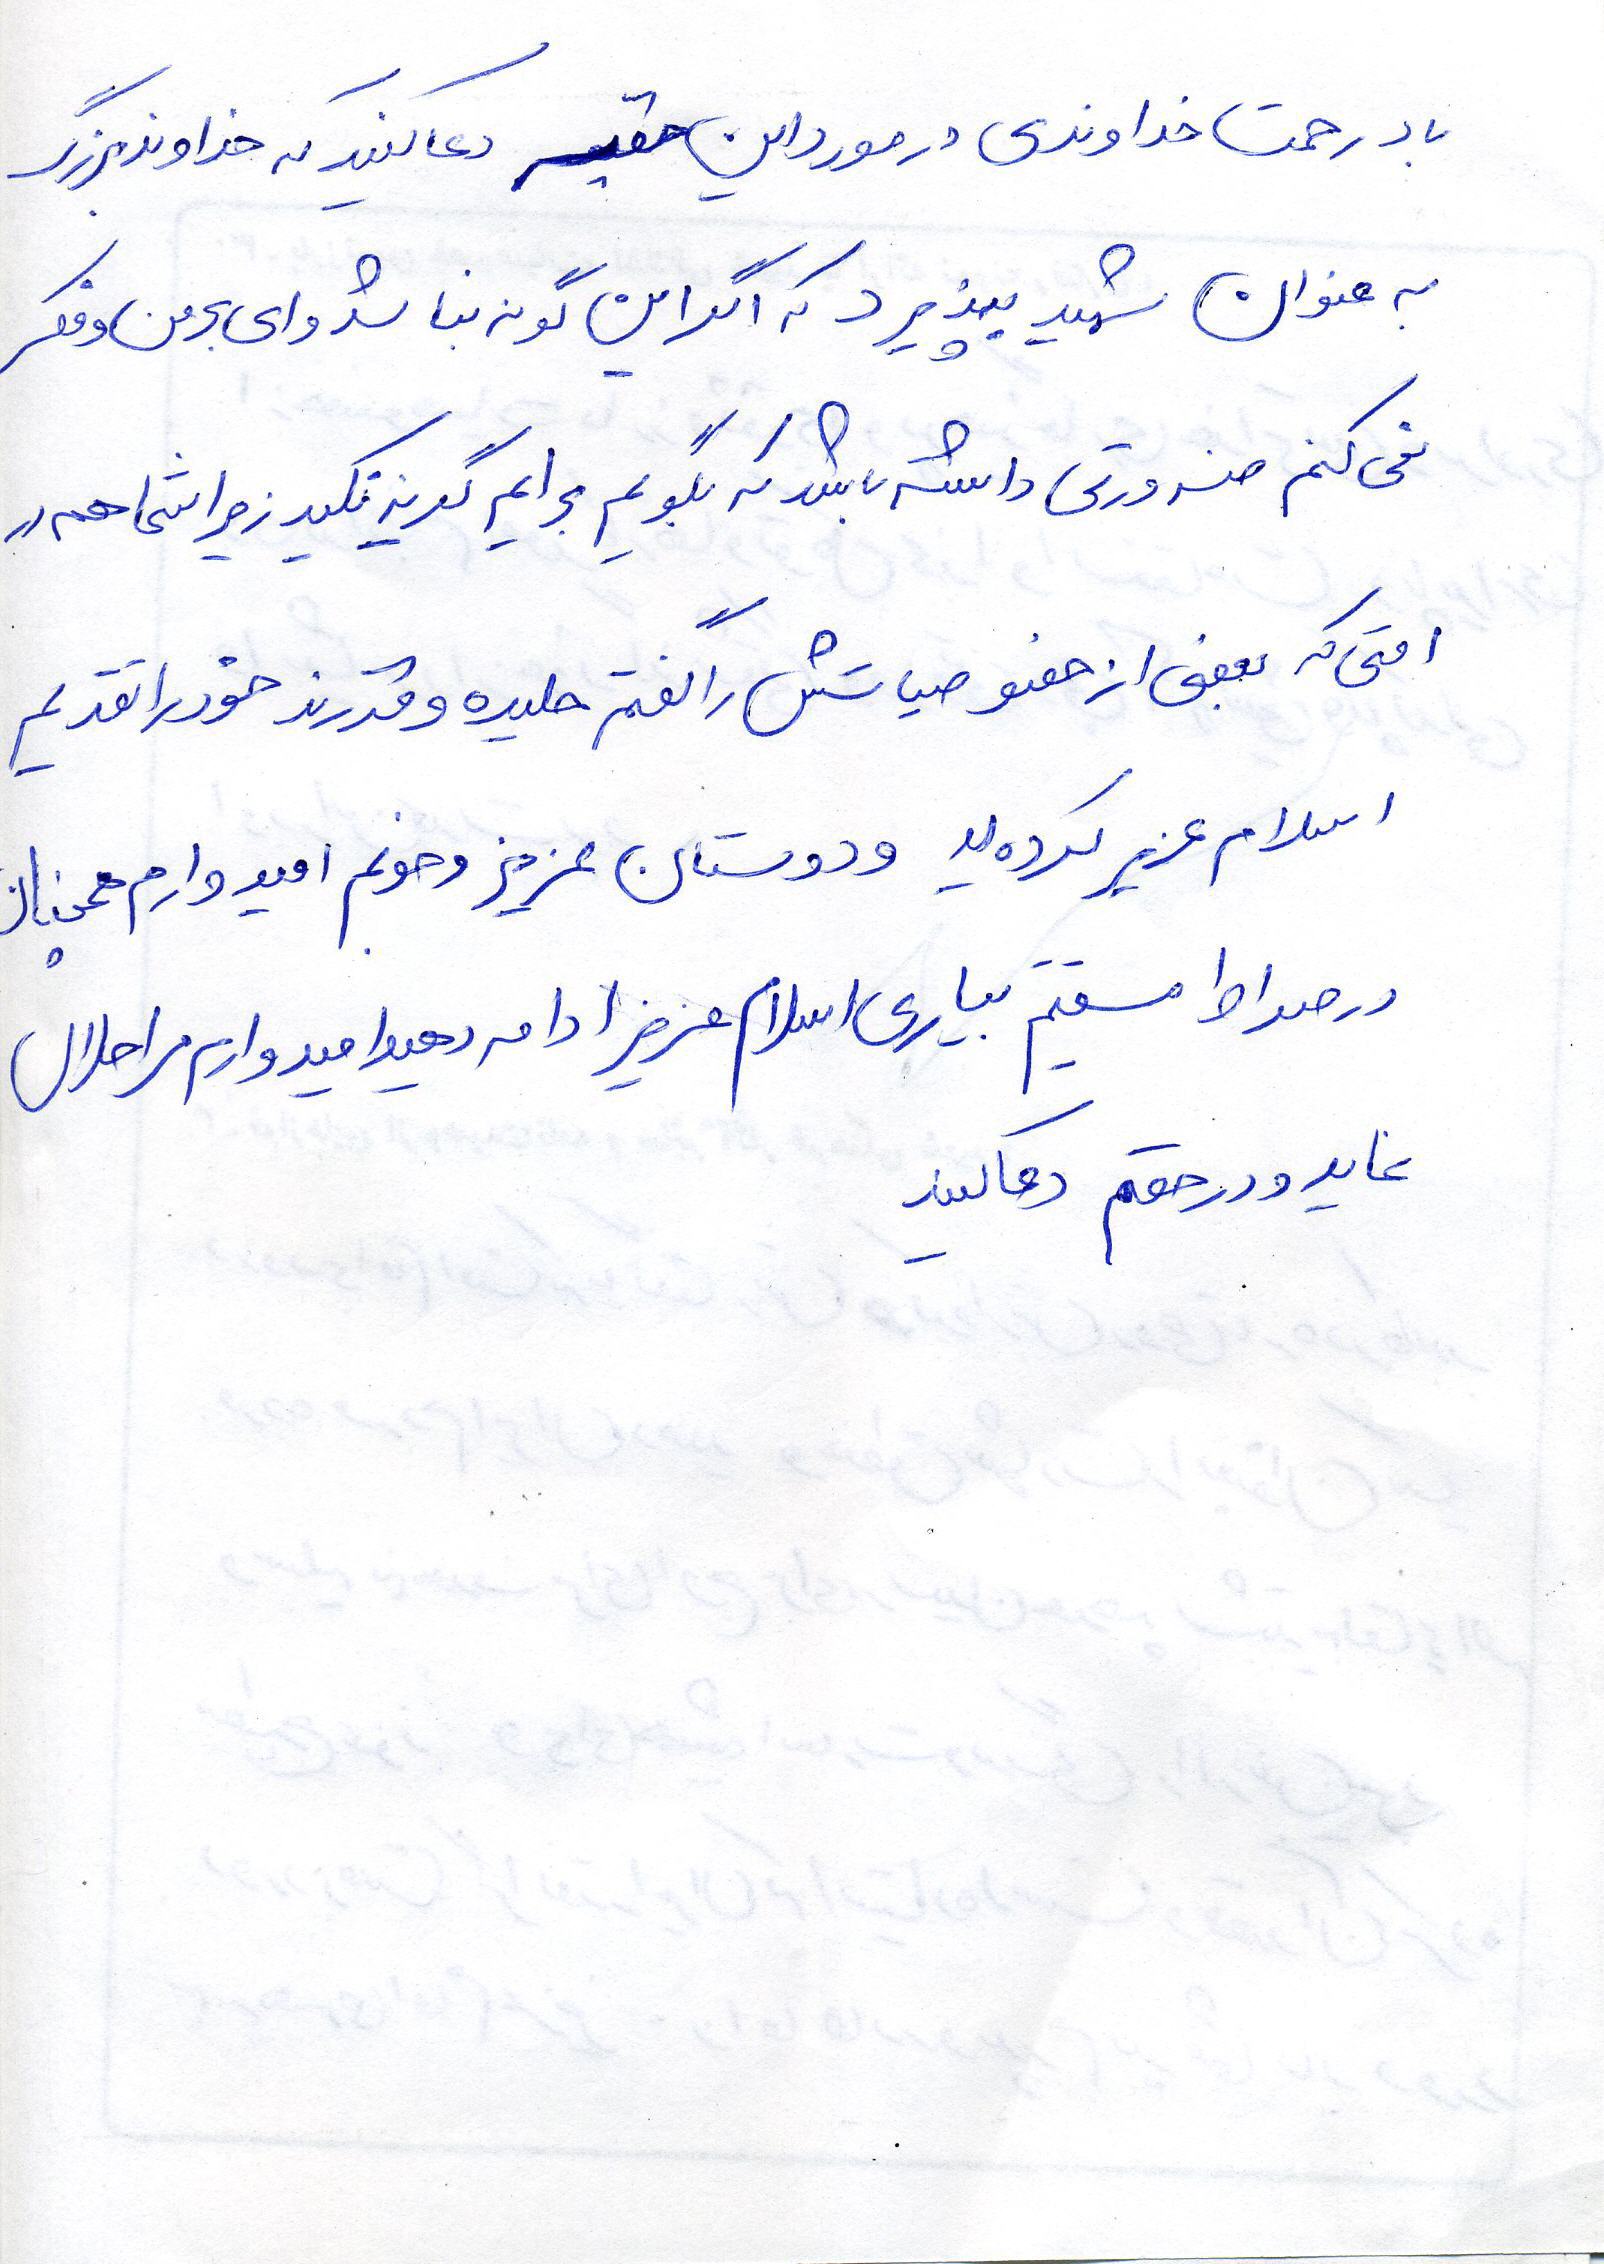 باد رحمت خداوندی در مورد این حقیر دعا کنید که خداوند بزرگ
به عنوان شهید بپذیرد که اگر این گونه نباشد وای بر من و فکر
نمی کنم ضرورتی داشته باشد که بگویم برایم گریه نکنید زیرا شما همه در
امتی که بعضی از خصوصیاتش را گفتم و فرزند خود را تقدیم
اسلام عزیز کرده اید و دوستان عزیز و خوبم امیدوارم همچنان
در صراط مستقیم بیاری اسلام عزیز ادامه دهید امیدوارم مرا حلال
نماید و در حقم دعا کنید